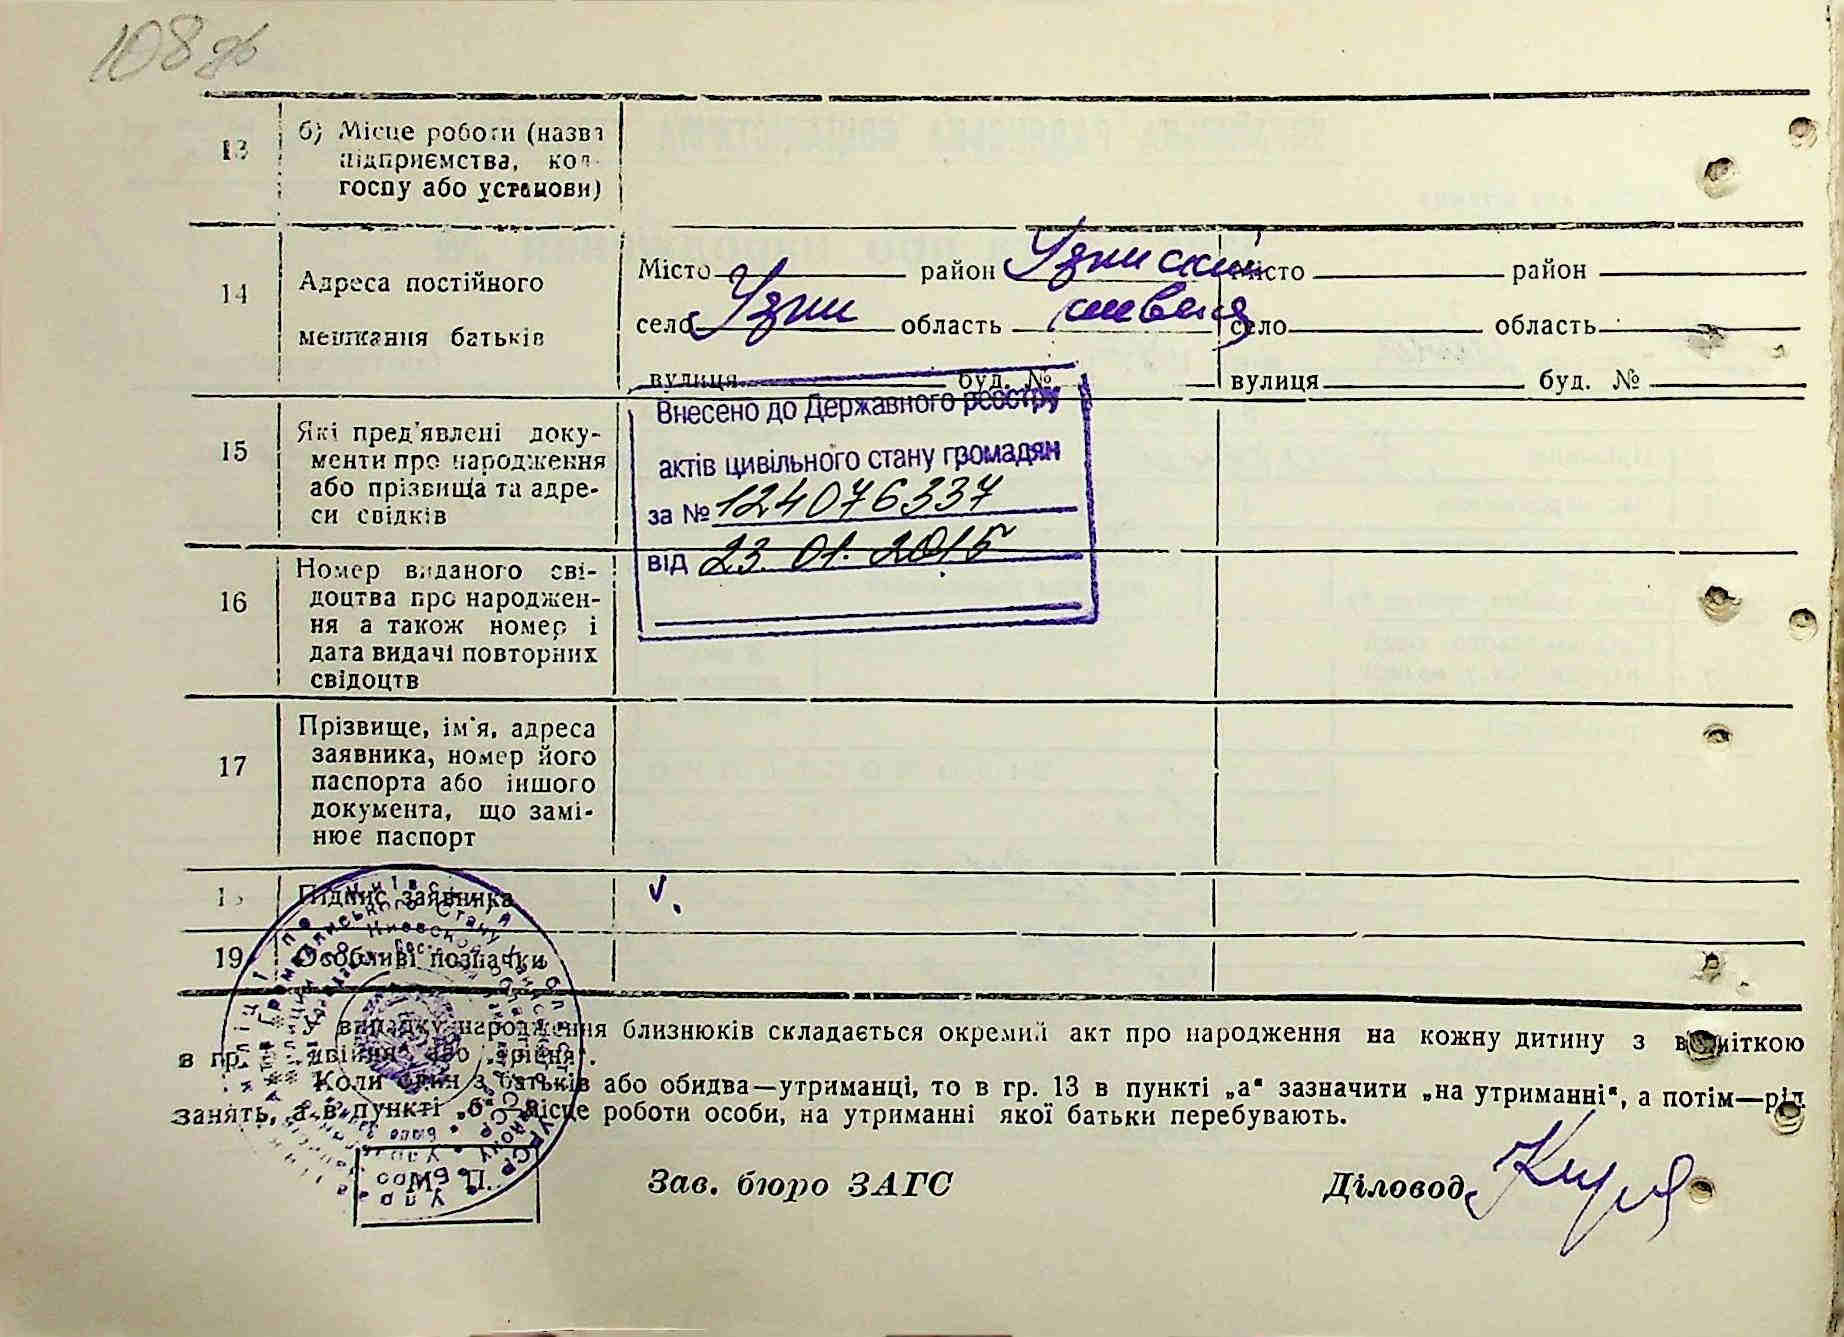 108
13 б) Місце роботи (назва
підприємства, кол-
госпу або установи)
14 Адреса постійного
мешкання батьків
Місто район Узинский
село Узин область
вулиця буд. №
Місто район
село область
вулиця буд. №
15 Які пред'явлені доку-
менти про народження
або прізвища та адре-
си свідків
Внесено до Державного реєстру
актів цивільного стану громадян
за № 124076337
від 23.01.2015
16 Номер виданого сві-
доцтва про народжен-
ня а також номер і
дата видачі повторних
свідоцтв
17 Прізвище, ім'я, адреса
заявника, номер його
паспорта або іншого
документа, що замі-
нює паспорт
Підпис заявника
v.
19 Особливі позначки
У випадку народження близнюків складається окремий акт про народження на кожну дитину з відміткою
в гр. „двійня“ або „трійня“.
Коли один з батьків або обидва—утриманці, то в гр. 13 в пункті „а“ зазначити „на утриманні“, а потім—рід
занять, а в пункті „б“—місце роботи особи, на утриманні якої батьки перебувають.
М. П.
Зав. бюро ЗАГС
Діловод